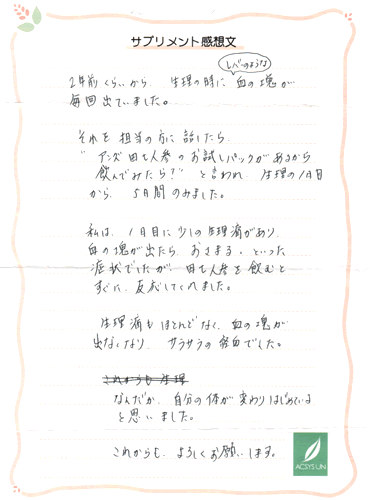 サプリメント感想文
レバーのような
2年前くらいから、生理の時に血の塊が
毎回出ていました。
それを担当の方に話したら、
"アンズ田七人参のお試しパックがあるから
飲んでみたら?"と言われ、生理の1日目
から、5日間のみました。
私は、1日目に少しの生理痛があり、
血の塊が出たら、おさまる、といった
症状でしたが、田七人参を飲むと
すぐに、反応してくれました。
生理痛もほとんどなく、血の塊が
出なくなり、サラサラの経血でした。
これからも生理
なんだか、自分の体が変わりはじめている
と思いました。
これからも、よろしくお願いします。
ACSYSUN